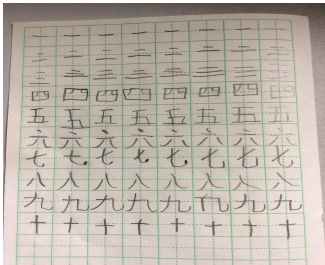 一 一 一 一 一 一 一 一
二 二 二 二 二 二 二 二
三 三 三 三 三 三 三 三
四 四 四 四 四 四 四 四
五 五 五 五 五 五 五 五
六 六 六 六 六 六 六 六
七 七 七 七 七 七 七 七
八 八 八 八 八 八 八 八
九 九 九 九 九 九 九 九
十 十 十 十 十 十 十 十